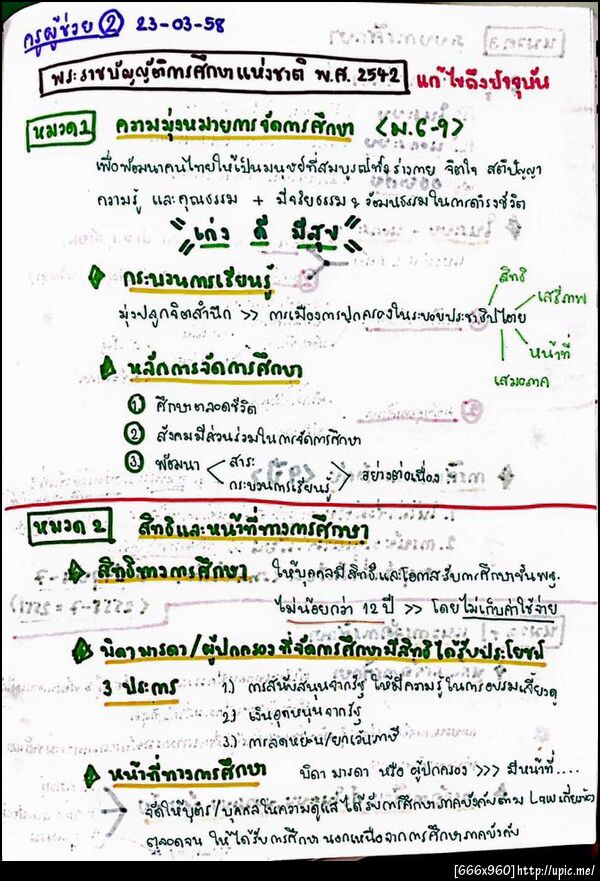 ครูผู้ช่วย ② 23-03-58
พระราชบัญญัติการศึกษาแห่งชาติ พ.ศ. 2542 แก้ไขถึงปัจจุบัน
หมวด 1 ความมุ่งหมายการจัดการศึกษา <ม.6-9>
เพื่อพัฒนาคนไทยให้เป็นมนุษย์ที่สมบูรณ์ทั้งร่างกาย จิตใจ สติปัญญา
ความรู้ และคุณธรรม + มีจริยธรรม & วัฒนธรรมในการดำรงชีวิต
"เก่ง ดี มีสุข"
กระบวนการเรียนรู้
สิทธิ
เสรีภาพ
มุ่งปลูกจิตสำนึก >> การเมืองการปกครองในระบอบประชาธิปไตย
หน้าที่
เสมอภาค
หลักการจัดการศึกษา
① ศึกษาตลอดชีวิต
② สังคมมีส่วนร่วมในการจัดการศึกษา
③ พัฒนา < สาระ
กระบวนการเรียนรู้ > อย่างต่อเนื่อง
หมวด 2 สิทธิและหน้าที่ทางการศึกษา
สิทธิทางการศึกษา ให้บุคคลมีสิทธิและโอกาสรับการศึกษาขั้นพฐ.
ไม่น้อยกว่า 12 ปี >> โดยไม่เก็บค่าใช้จ่าย
บิดามารดา/ผู้ปกครอง ที่จัดการศึกษามีสิทธิได้รับประโยชน์
3 ประการ 1.) การสนับสนุนจากรัฐ ให้มีความรู้ในการอบรมเลี้ยงดู
2.) เงินอุดหนุนจากรัฐ
3.) การลดหย่อน/ยกเว้นภาษี
หน้าที่ทางการศึกษา บิดา มารดา หรือ ผู้ปกครอง >>> มีหน้าที่....
จัดให้บุตร/บุคคลในความดูแล ได้รับการศึกษาภาคบังคับตาม Law เกี่ยวข้อง
ตลอดจน ให้ได้รับการศึกษา นอกเหนือจากการศึกษาภาคบังคับ
[666x960] http://upic.me/